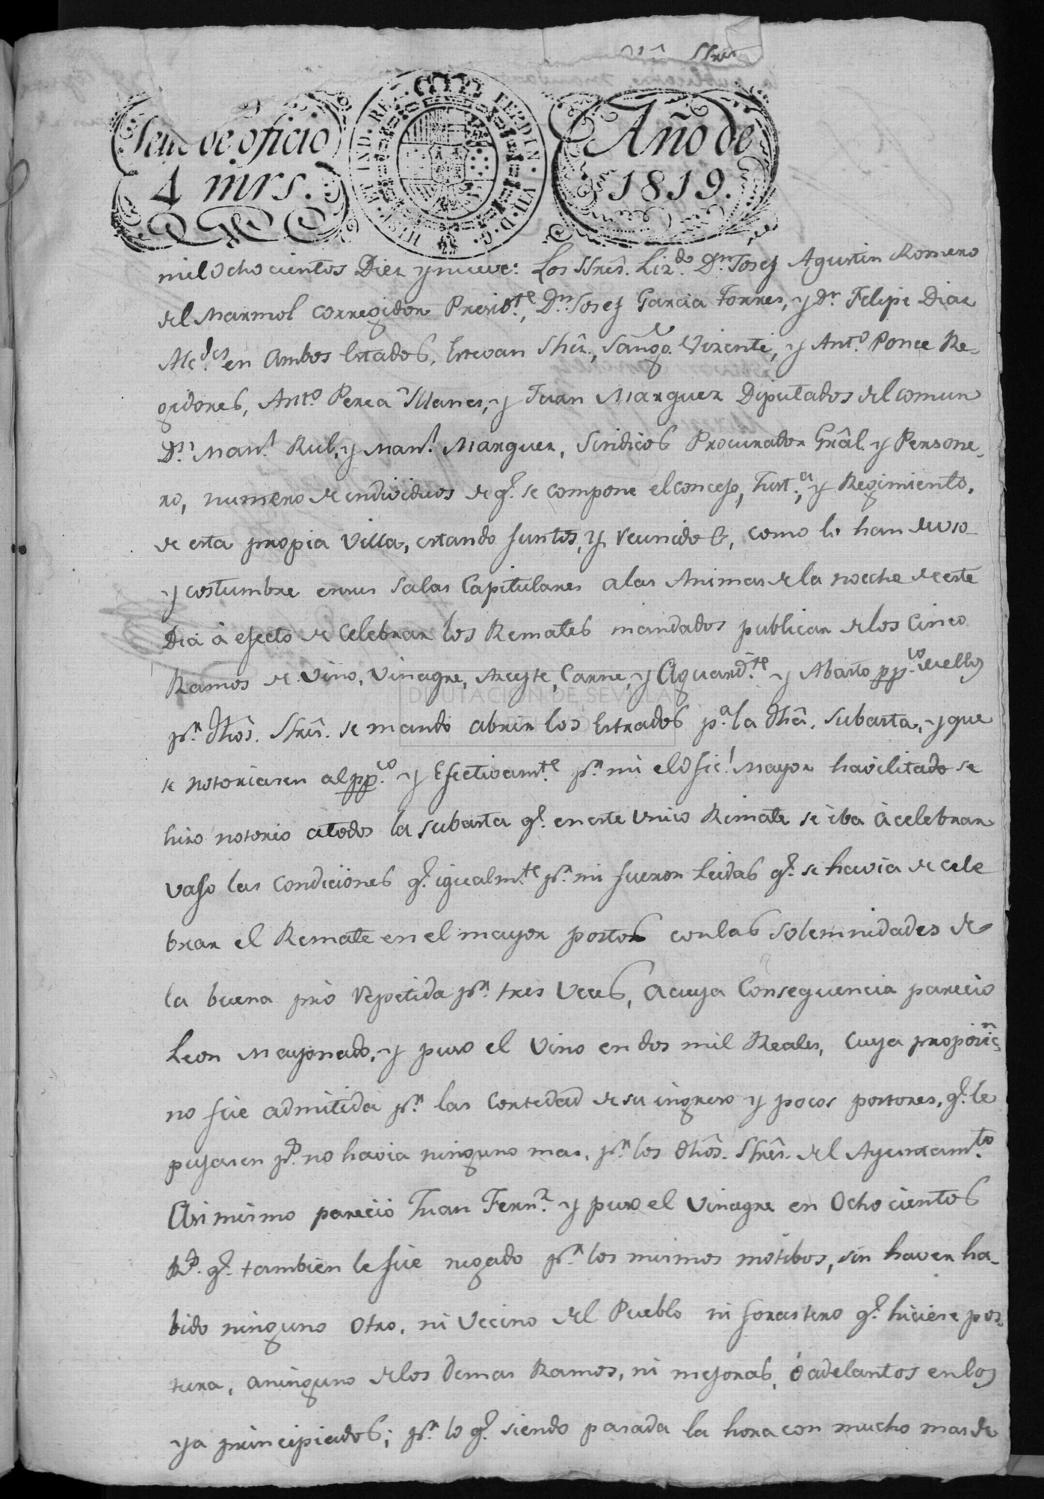 Sello de oficio
4 mrs.
HISP. ET IND. REX. FERDIN. VII. D. G.
Año de
1819.
mil ocho cientos Diez y nueve: Los Sres. Lizdo. Dn. Josef Agustin Romero
del Marmol Corregidor Presidte., Dn. Josef Garcia Torres, y Dn. Felipe Diaz
Alcdes. en Ambos Estados, Estevan Shez., Santgo. Vizente, y Anto. Ponce Re-
gidores, Anto. Perea Yllanes, y Juan Marquez Diputados del comun
Dn. Manl. Rul, y Manl. Marquez, Sindicos Procurador Gral. y Persone-
ro, numero de individuos de q. se compone el concejo, Justa., y Regimiento,
de esta propia Villa, estando juntos, y reunidos, como lo han de uso
y costumbre en sus Salas Capitulares a las Animas de la noche de este
Dia á efecto de Celebrar los Remates mandados publicar de los Cinco
Ramos de Vino, Vinagre, Aceyte, Carne, y Aguardte. y Abasto ppco. de ellos
DIPUTACIÓN DE SEVILLA
pr. dhos. Sres. se mandó abrir los Estrados pa. la dha. Subasta, y que
se notoriasen al ppco. y Efectivamte. pr. mi el Ofic! Mayor havilitado se
hizo notorio a todos la Subasta q. en este Unico Remate se iba á celebrar
vajo las Condiciones q. igualmte. pr. mi fueron Leidas q. se havia de cele
brar el Remate en el mayor postor con las Solemnidades de
la buena pró repetida pr. tres veces, a cuya Consequencia parecio
Leon Mayorado, y puso el Vino en dos mil Reales, Cuya proposicn.
no fue admitida pr. las Cortedad de su ingreso y pocos postores, q. le
pujasen ps. no havia ninguno mas, pr. los dhos. Sres. del Ayuntamto.
Asi mismo parecio Juan Fernz. y puso el Vinagre en Ocho cientos
rs. q. tambien le fue negado pr. los mismos motibos, sin haver ha-
bido ninguno otro, ni Vecino del Pueblo ni forastero q. hiciese pos-
tura, a ninguno de los demas Ramos, ni mejoras, ó adelantos en los
ya principiados; pr. lo q. siendo pasada la hora con mucho mas de